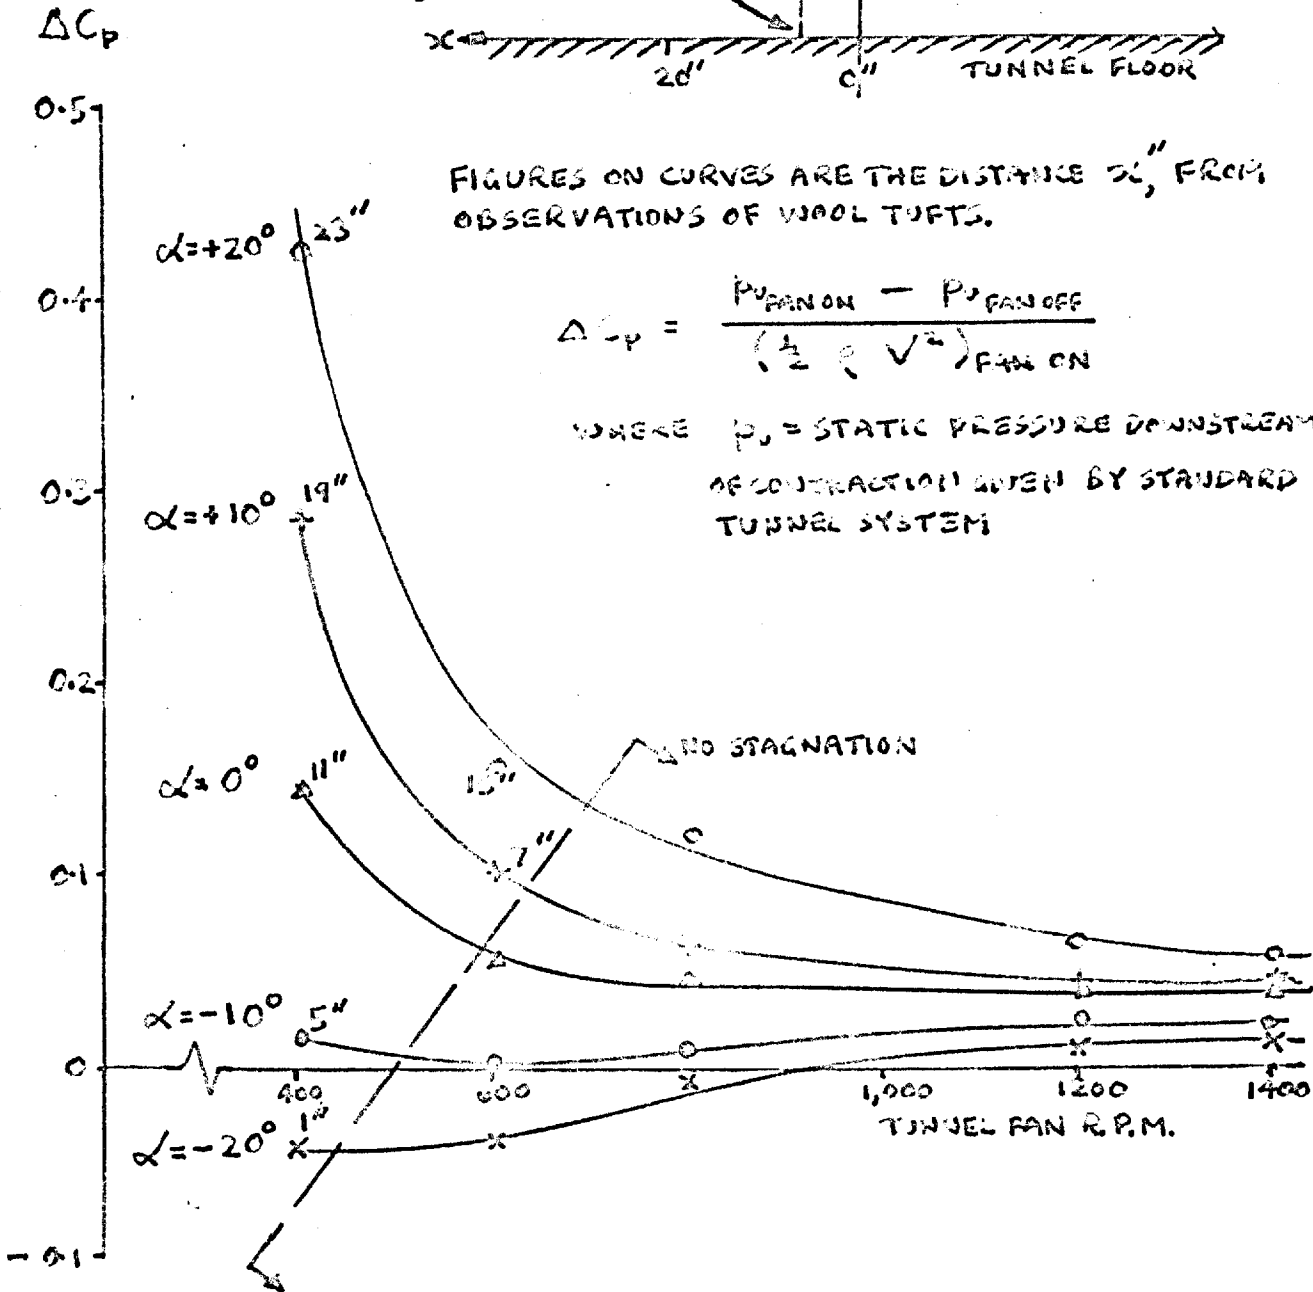 ΔCp
x
20"
0"
TUNNEL FLOOR
0.5
FIGURES ON CURVES ARE THE DISTANCE x," FROM
OBSERVATIONS OF WOOL TUFTS.
α=+20° 23"
0.4
ΔCp = FAN ON − FAN OFF
(½ ρ V²) FAN ON
WHERE = STATIC PRESSURE DOWNSTREAM
OF CONTRACTION GIVEN BY STANDARD
TUNNEL SYSTEM
0.3
α=+10° 19"
0.2
NO STAGNATION
α=0° 11"
0.1
7"
α=-10° 5"
0
400
600
1,000
1200
1400
TUNNEL FAN R.P.M.
α=-20° 1"
-0.1